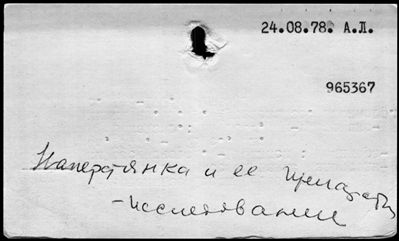 24.08.78. А.Л.
965367
Наперстянка и ее препараты
- исследование